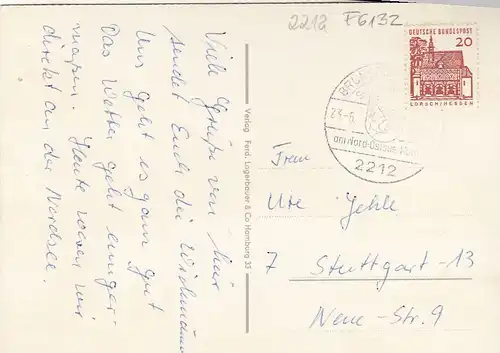 2212 F6132
DEUTSCHE BUNDESPOST
20
LORSCH/HESSEN
23.-6.
am Nord-Ostsee-
2212
Verlag Ferd. Lagerbauer & Co Hamburg 35
Viele Grüße von hier
sendet Euch die
Uns geht es ganz gut
Das Wetter geht einiger-
maßen. Heute waren wir
direkt an der Nordsee.
Frau
Ute Jehle
7 Stuttgart-13
Neue-Str. 9